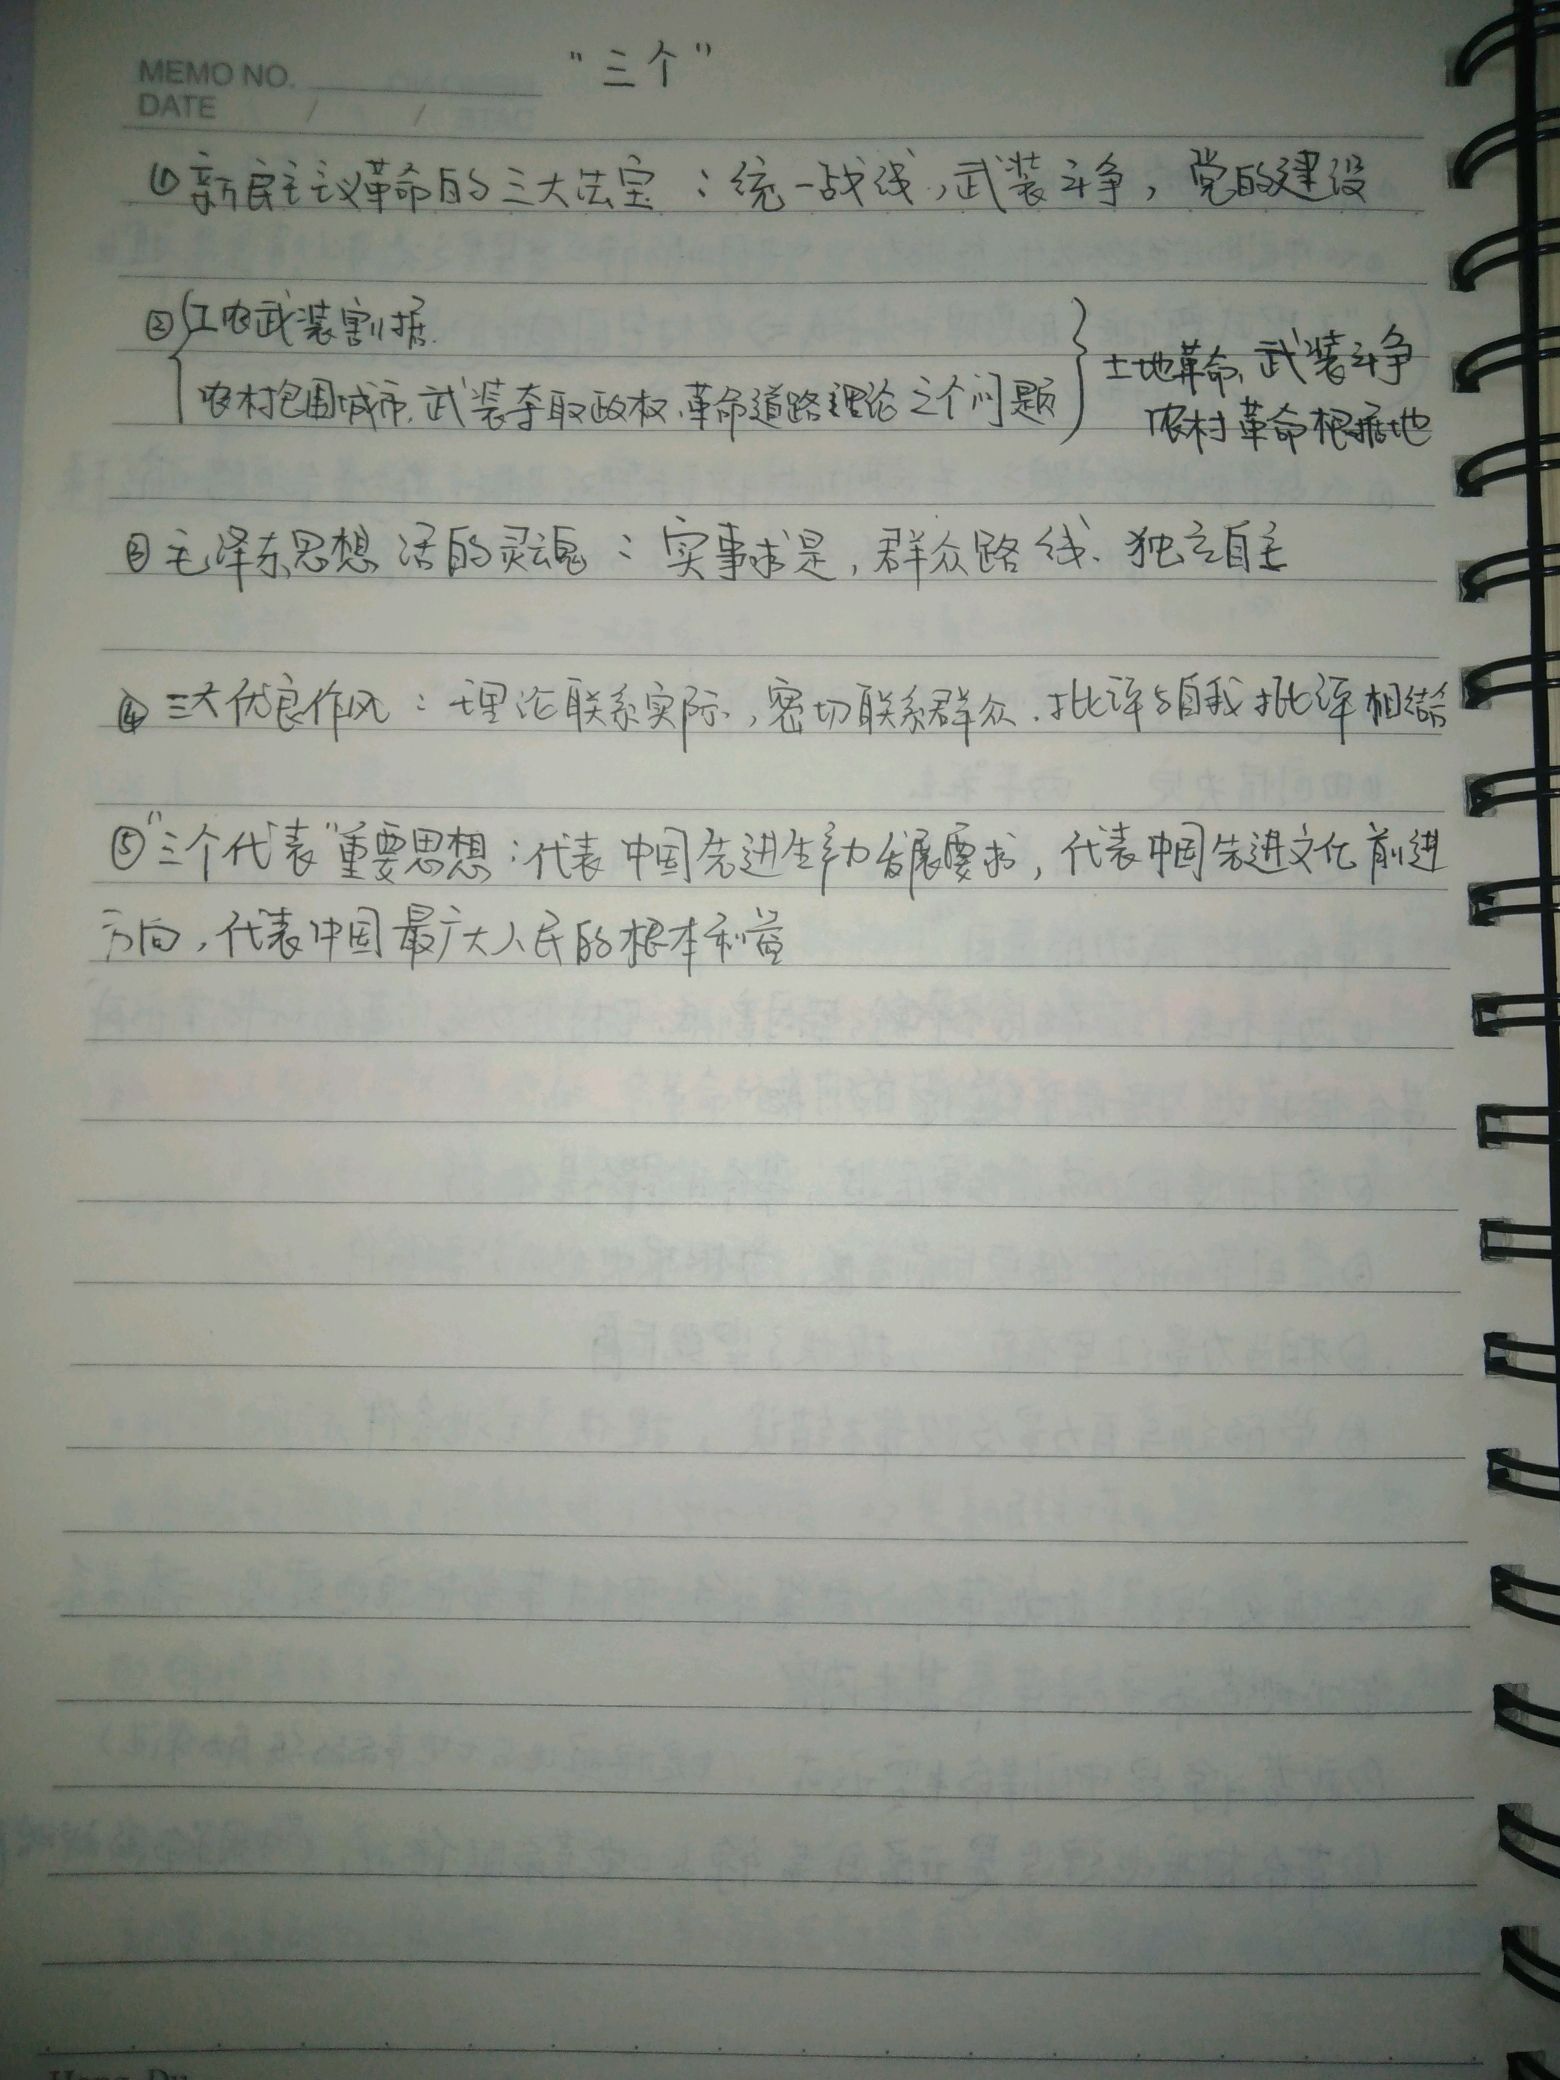 MEMO NO.
"三个"
DATE / /
①新民主主义革命的三大法宝：统一战线，武装斗争，党的建设
②工农武装割据
农村包围城市、武装夺取政权、革命道路理论三个问题
土地革命、武装斗争
农村革命根据地
③毛泽东思想活的灵魂：实事求是，群众路线、独立自主
④三大优良作风：理论联系实际，密切联系群众、批评与自我批评相结合
⑤"三个代表"重要思想：代表中国先进生产力发展要求，代表中国先进文化前进
方向，代表中国最广大人民的根本利益